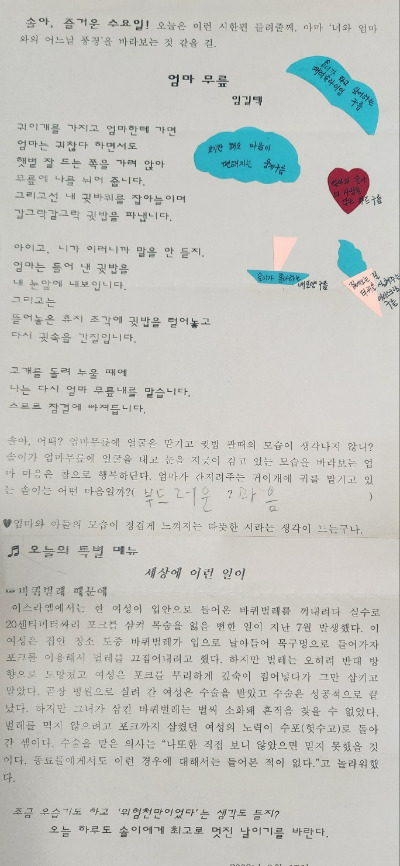 솔아, 즐거운 수요일! 오늘은 이런 시한편 들려줄께, 아마 '너와 엄마
와의 어느날 풍경'을 바라보는 것 같을 걸.
엄마 무릎
임길택
귀이개를 가지고 엄마한테 가면
엄마는 귀찮다 하면서도
햇볕 잘 드는 쪽을 가려 앉아
무릎에 나를 뉘어 줍니다.
그리고선 내 귓바퀴를 잡아늘이며
갈그락갈그락 귓밥을 파냅니다.
아이고, 니가 이러니까 말을 안 듣지.
엄마는 들어 낸 귓밥을
내 눈앞에 내보입니다.
그리고는
뜯어놓은 휴지 조각에 귓밥을 털어놓고
다시 귓속을 간질입니다.
고개를 돌려 누울 때에
나는 다시 엄마 무릎내를 맡습니다.
스르르 잠결에 빠져듭니다.
구름
마음이
구름
구름
구름
솔아, 어때? 엄마무릎에 얼굴은 맡기고 귓밥 팔때의 모습이 생각나지 않니?
솔이가 엄마무릎에 얼굴을 대고 눈을 지긋이 감고 있는 모습을 바라보는 엄
마 마음은 참으로 행복하단다. 엄마가 간지려주는 귀이개에 귀를 맡기고 있
는 솔이는 어떤 마음일까?( 부드러운 ? 마음 )
♥엄마와 아들의 모습이 정겹게 느껴지는 따뜻한 시라는 생각이 드는구나.
♬ 오늘의 특별 메뉴
세상에 이런 일이
바퀴벌레 때문에
이스라엘에서는 한 여성이 입안으로 들어온 바퀴벌레를 꺼내려다 실수로
20센티미터짜리 포크를 삼켜 목숨을 잃을 뻔한 일이 지난 7월 발생했다. 이
여성은 집안 청소 도중 바퀴벌레가 입으로 날아들어 목구멍으로 들어가자
포크를 이용해서 벌레를 끄집어내려고 했다. 하지만 벌레는 오히려 반대 방
향으로 도망쳤고 여성은 포크를 무리하게 깊숙이 집어넣다가 그만 삼키고
말았다. 곧장 병원으로 실려 간 여성은 수술을 받았고 수술은 성공적으로 끝
났다. 하지만 그녀가 삼킨 바퀴벌레는 벌써 소화돼 흔적을 찾을 수 없었다.
벌레를 먹지 않으려고 포크까지 삼켰던 여성의 노력이 수포(헛수고)로 돌아
간 셈이다. 수술을 맡은 의사는 "나또한 직접 보니 않았으면 믿지 못했을 것
이다. 동료들에게서도 이런 경우에 대해서는 들어본 적이 없다."고 놀라워했
다.
조금 우습기도 하고 '위험천만이었다'는 생각도 들지?
오늘 하루도 솔이에게 최고로 멋진 날이기를 바란다.